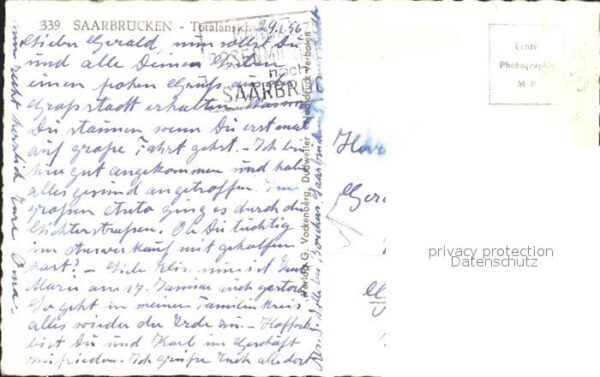 339 SAARBRÜCKEN - Totalansicht
29.1.56
nach
SAARBRÜ
Echte
Photographie
M P
Lieber Gerald, nun sollst Du
und alle Deinen Lieben
einen frohen Gruß aus der
Großstadt erhalten.
Du staunen wenn Du erst mal
auf große Fahrt gehst. - Ich bin
hier gut angekommen und habe
alles gesund angetroffen. Im
großen Auto ging es durch die
Lichterstraßen. Ob Du tüchtig
im Ausverkauf mit geholfen
hast? - Liebe Elis. nun ist
Maria am 17. Januar auch gestorben
So geht in meinem Familienkreis
alles wieder der Erde zu. - Hoffentl.
bist Du und Karl im Geschäft
zufrieden. Ich grüße Euch alle dort
nun recht herzlich Eure Oma.
Verlag G. Vockenberg, Dudweiler Nachdruck verboten
Abs.
Saarbrücken
Herr
privacy protection
Datenschutz